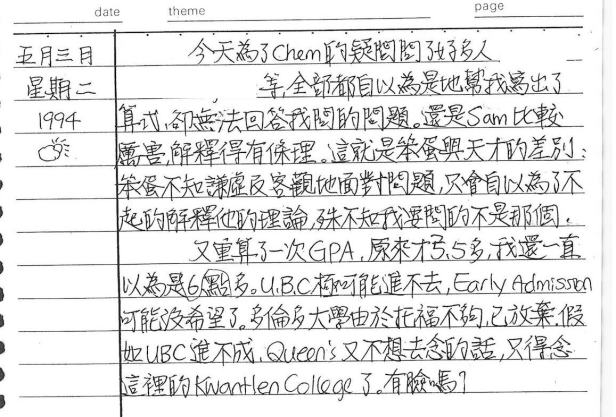 date theme page
五月三日 今天為了Chem的疑問問了好多人
星期二 等,全部都自以為是地幫我寫出了
1994 算式,卻無法回答我問的問題。還是Sam比較
厲害,解釋得有條理。這就是笨蛋與天才的差別:
笨蛋不知謙虛及客觀地面對問題,只會自以為了不
起的解釋他的理論,殊不知我要問的不是那個.
又重算了一次GPA,原來才弓.5多,我還一直
以為是6點多。U.B.C極可能進不去,Early Admission
可能沒希望了。多倫多大學由於托福不夠,已放棄.假
如UBC進不成.Queen's又不想去念的話,只得念
這裡的Kwantlen College了。有臉嗎?